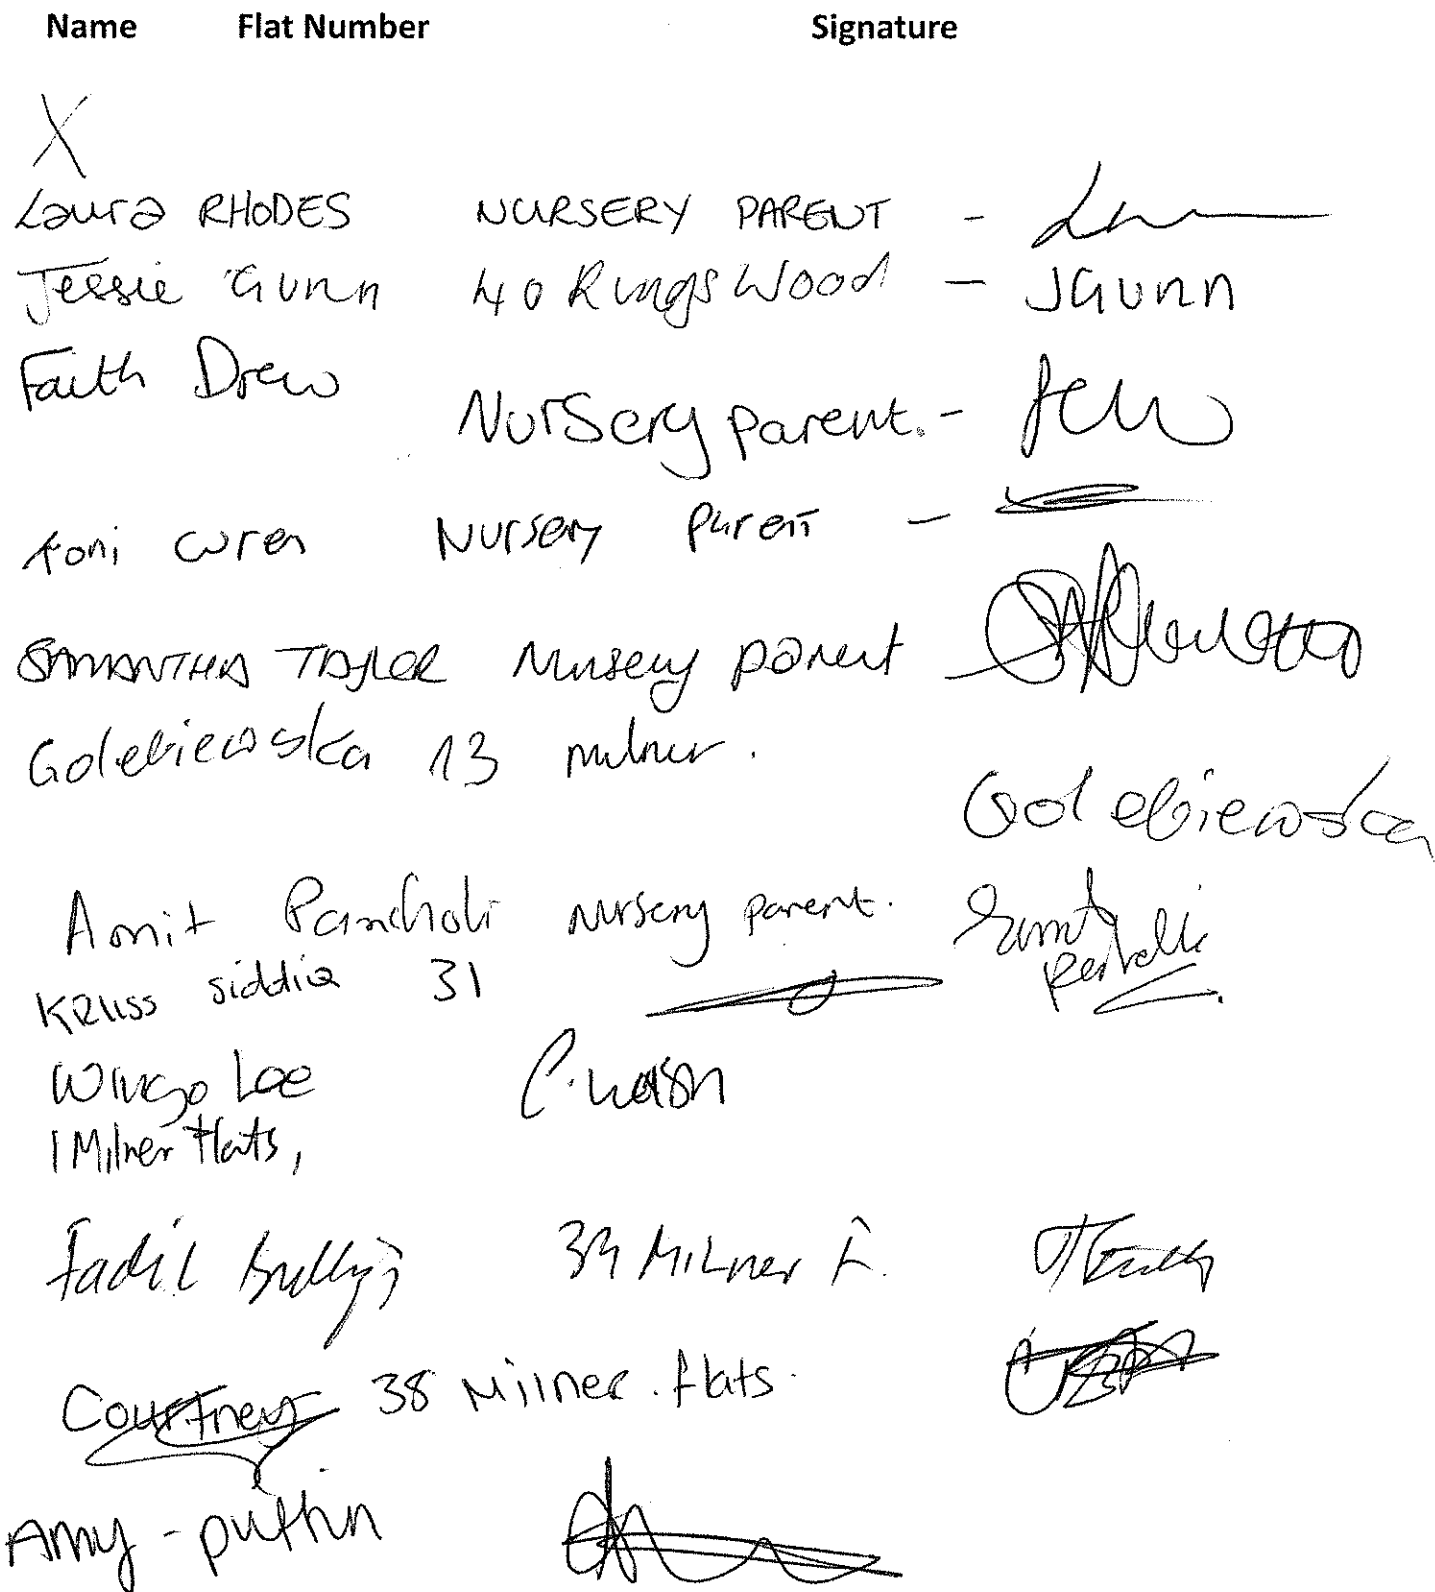 Name Flat Number Signature
X
Laura RHODES NURSERY PARENT -
Jessie Gunn 40 Kingswood - JGunn
Faith Drew
Nursery parent. -
Toni Wren Nursery parent -
SAMANTHA TAYLOR Nursery parent
Golebiewska 13 milner.
Golebiewska
Amit Pancholi nursery parent.
KRUSS siddiq 31
Wingo Lee
1 Milner Flats,
Fadil 39 Milner F.
Courtney 38 Milner. flats.
Amy - puffin